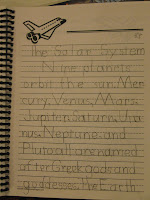 The Solar System
Nine planets
orbit the sun. Mer
cury, Venus, Mars
Jupiter, Saturn, Ura
nus, Neptune and
Pluto all are named
after Greek gods and
goddesses. the Earth